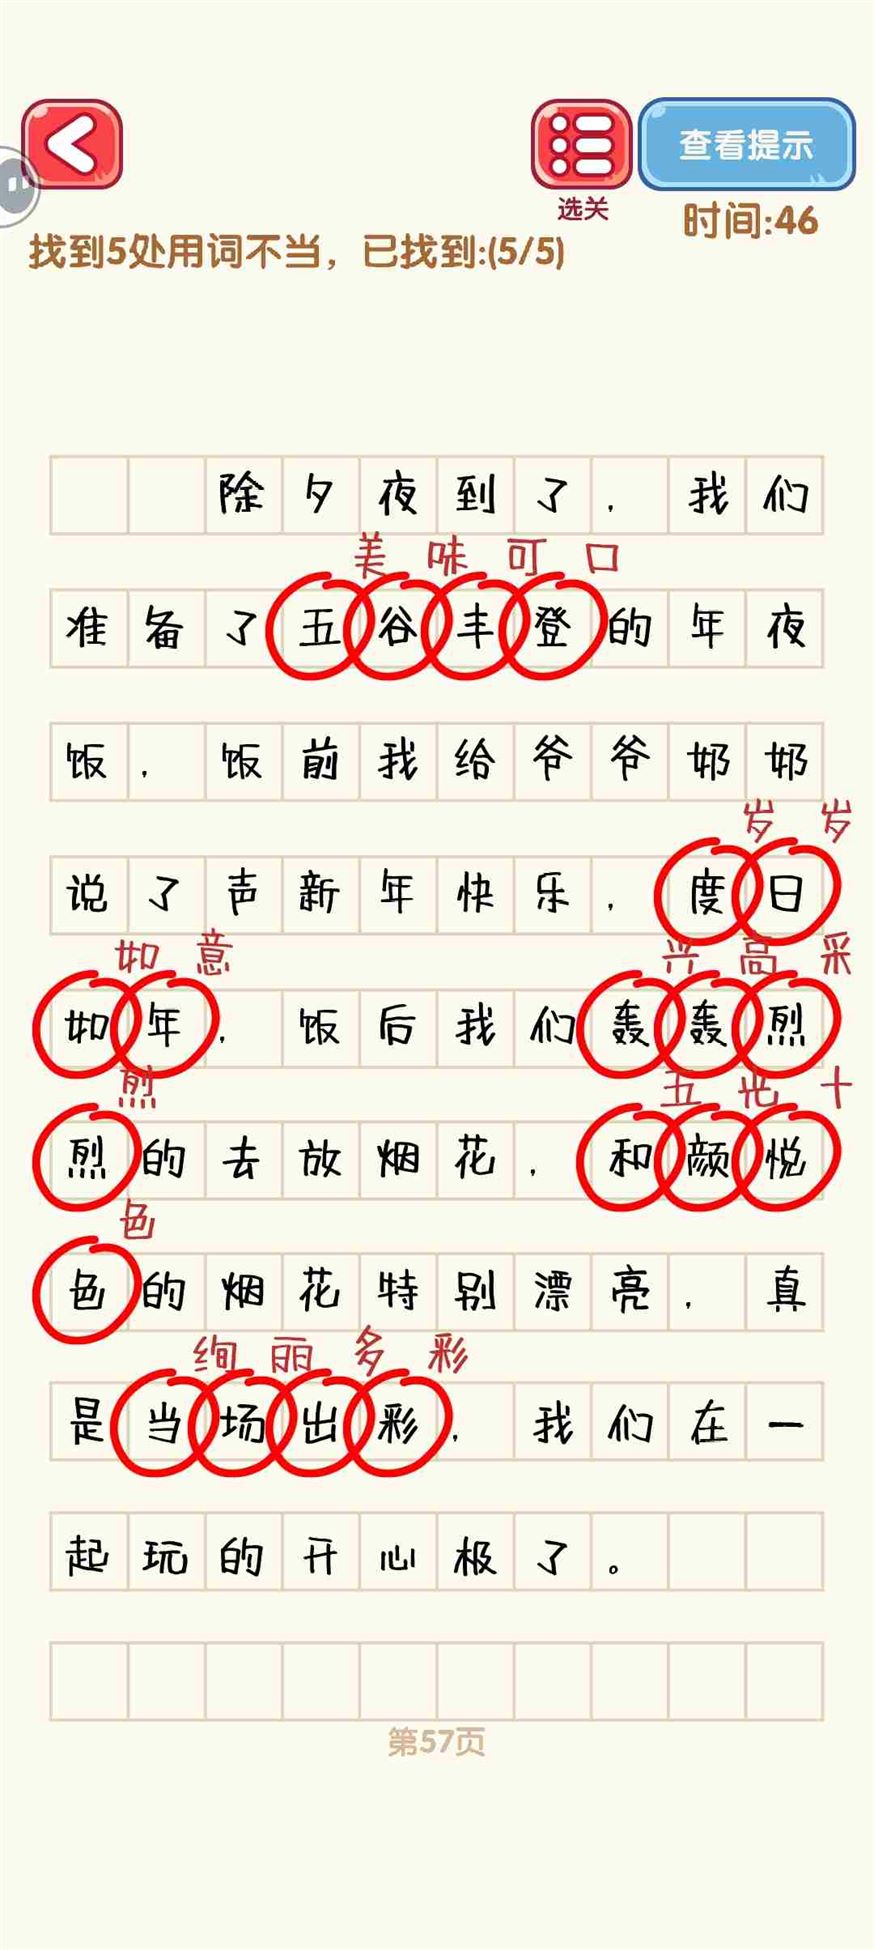 查看提示
选关
时间:46
找到5处用词不当，已找到:(5/5)
除夕夜到了，我们
美味可口
准备了五谷丰登的年夜
饭，饭前我给爷爷奶奶
岁岁
说了声新年快乐，度日
如意 兴高采
如年，饭后我们轰轰烈
烈 五光十
烈的去放烟花，和颜悦
色
色的烟花特别漂亮，真
绚丽多彩
是当场出彩，我们在一
起玩的开心极了。
第57页